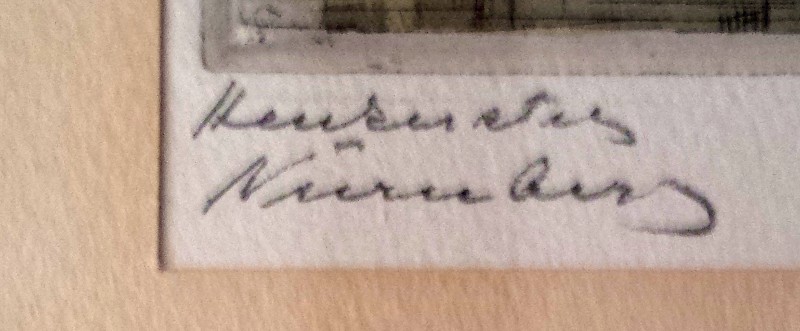 Henkersteg
Nürnberg